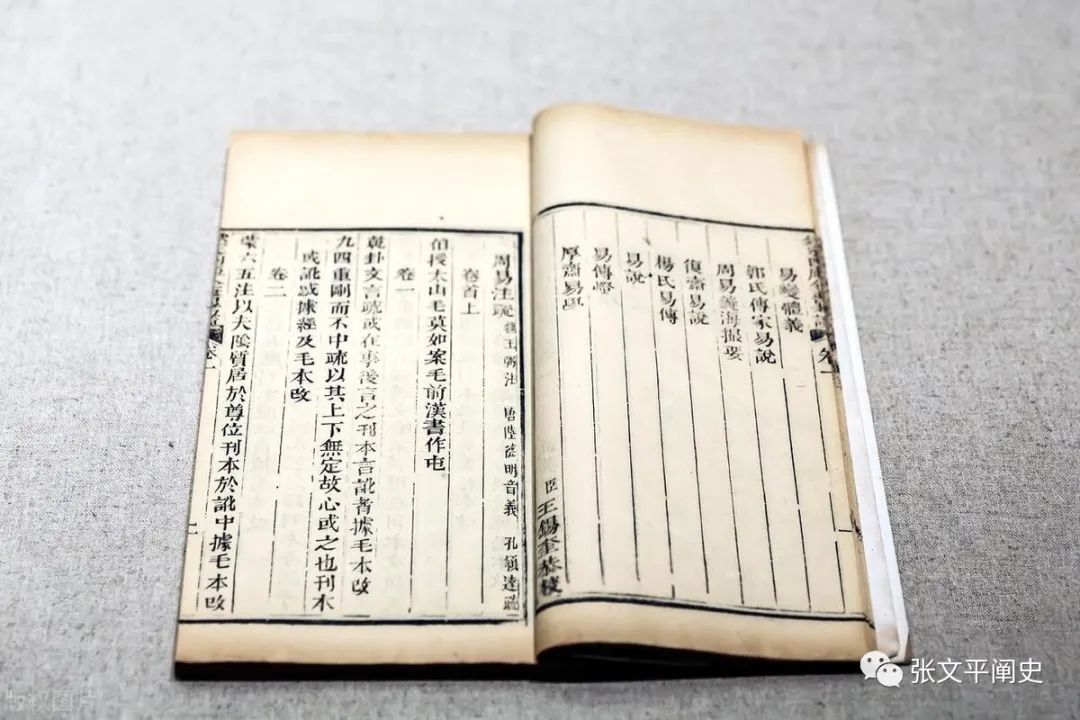 易變體義
郭氏傳家易說
周易義海撮要
復齋易說
楊氏易傳
易說
易傳燈
厚齋易學
臣王錫奎恭校
卷一
周易注疏 王弼注 唐陸德明音義 孔穎達疏
卷首上
伯授太山毛莫如案毛前漢書作屯
卷一
乾卦文言疏或在事後言之刊本言訛者據毛本改
九四重剛而不中疏以其上下無定故心或之也刊本
或訛惑據經及毛本改
卷二
蒙六五注以夫陰質居於尊位刊本於訛中據毛本改
卷一
张文平阐史
版权图片